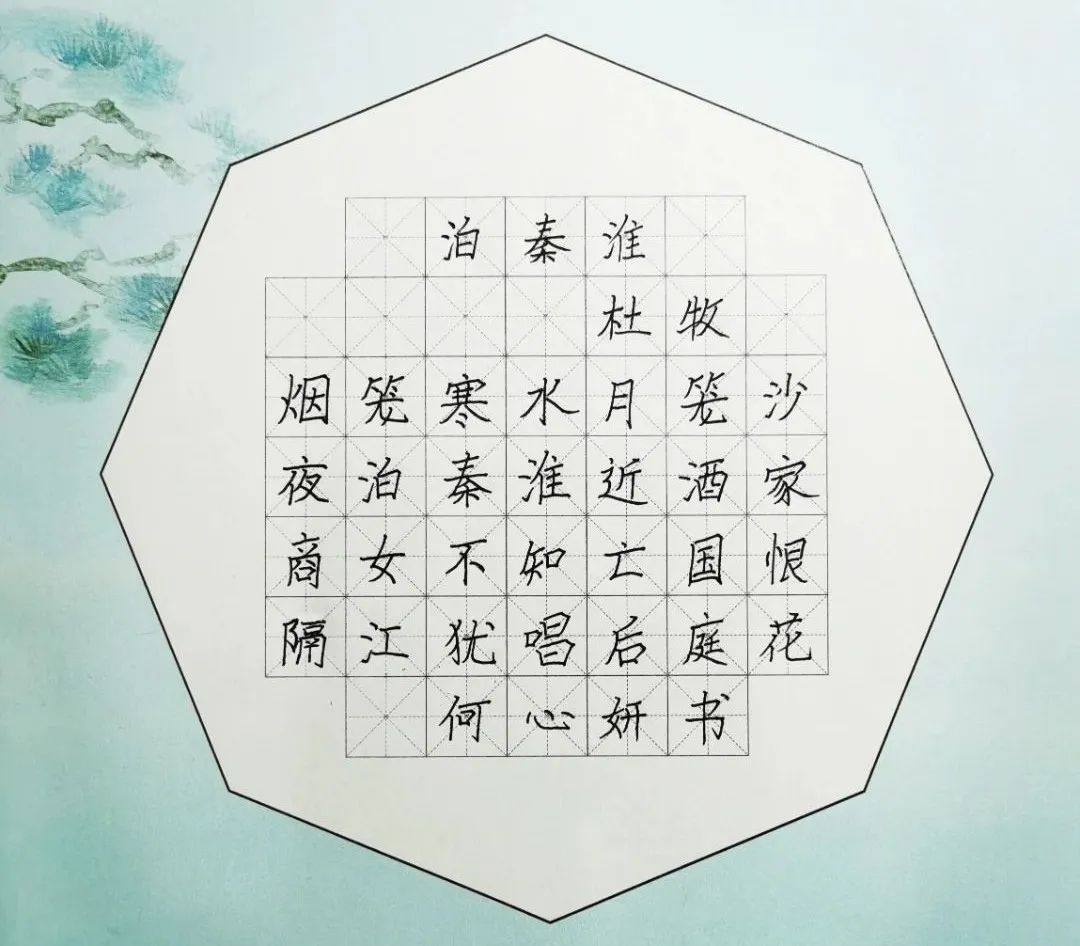 泊秦淮
杜牧
烟笼寒水月笼沙
夜泊秦淮近酒家
商女不知亡国恨
隔江犹唱后庭花
何心妍书